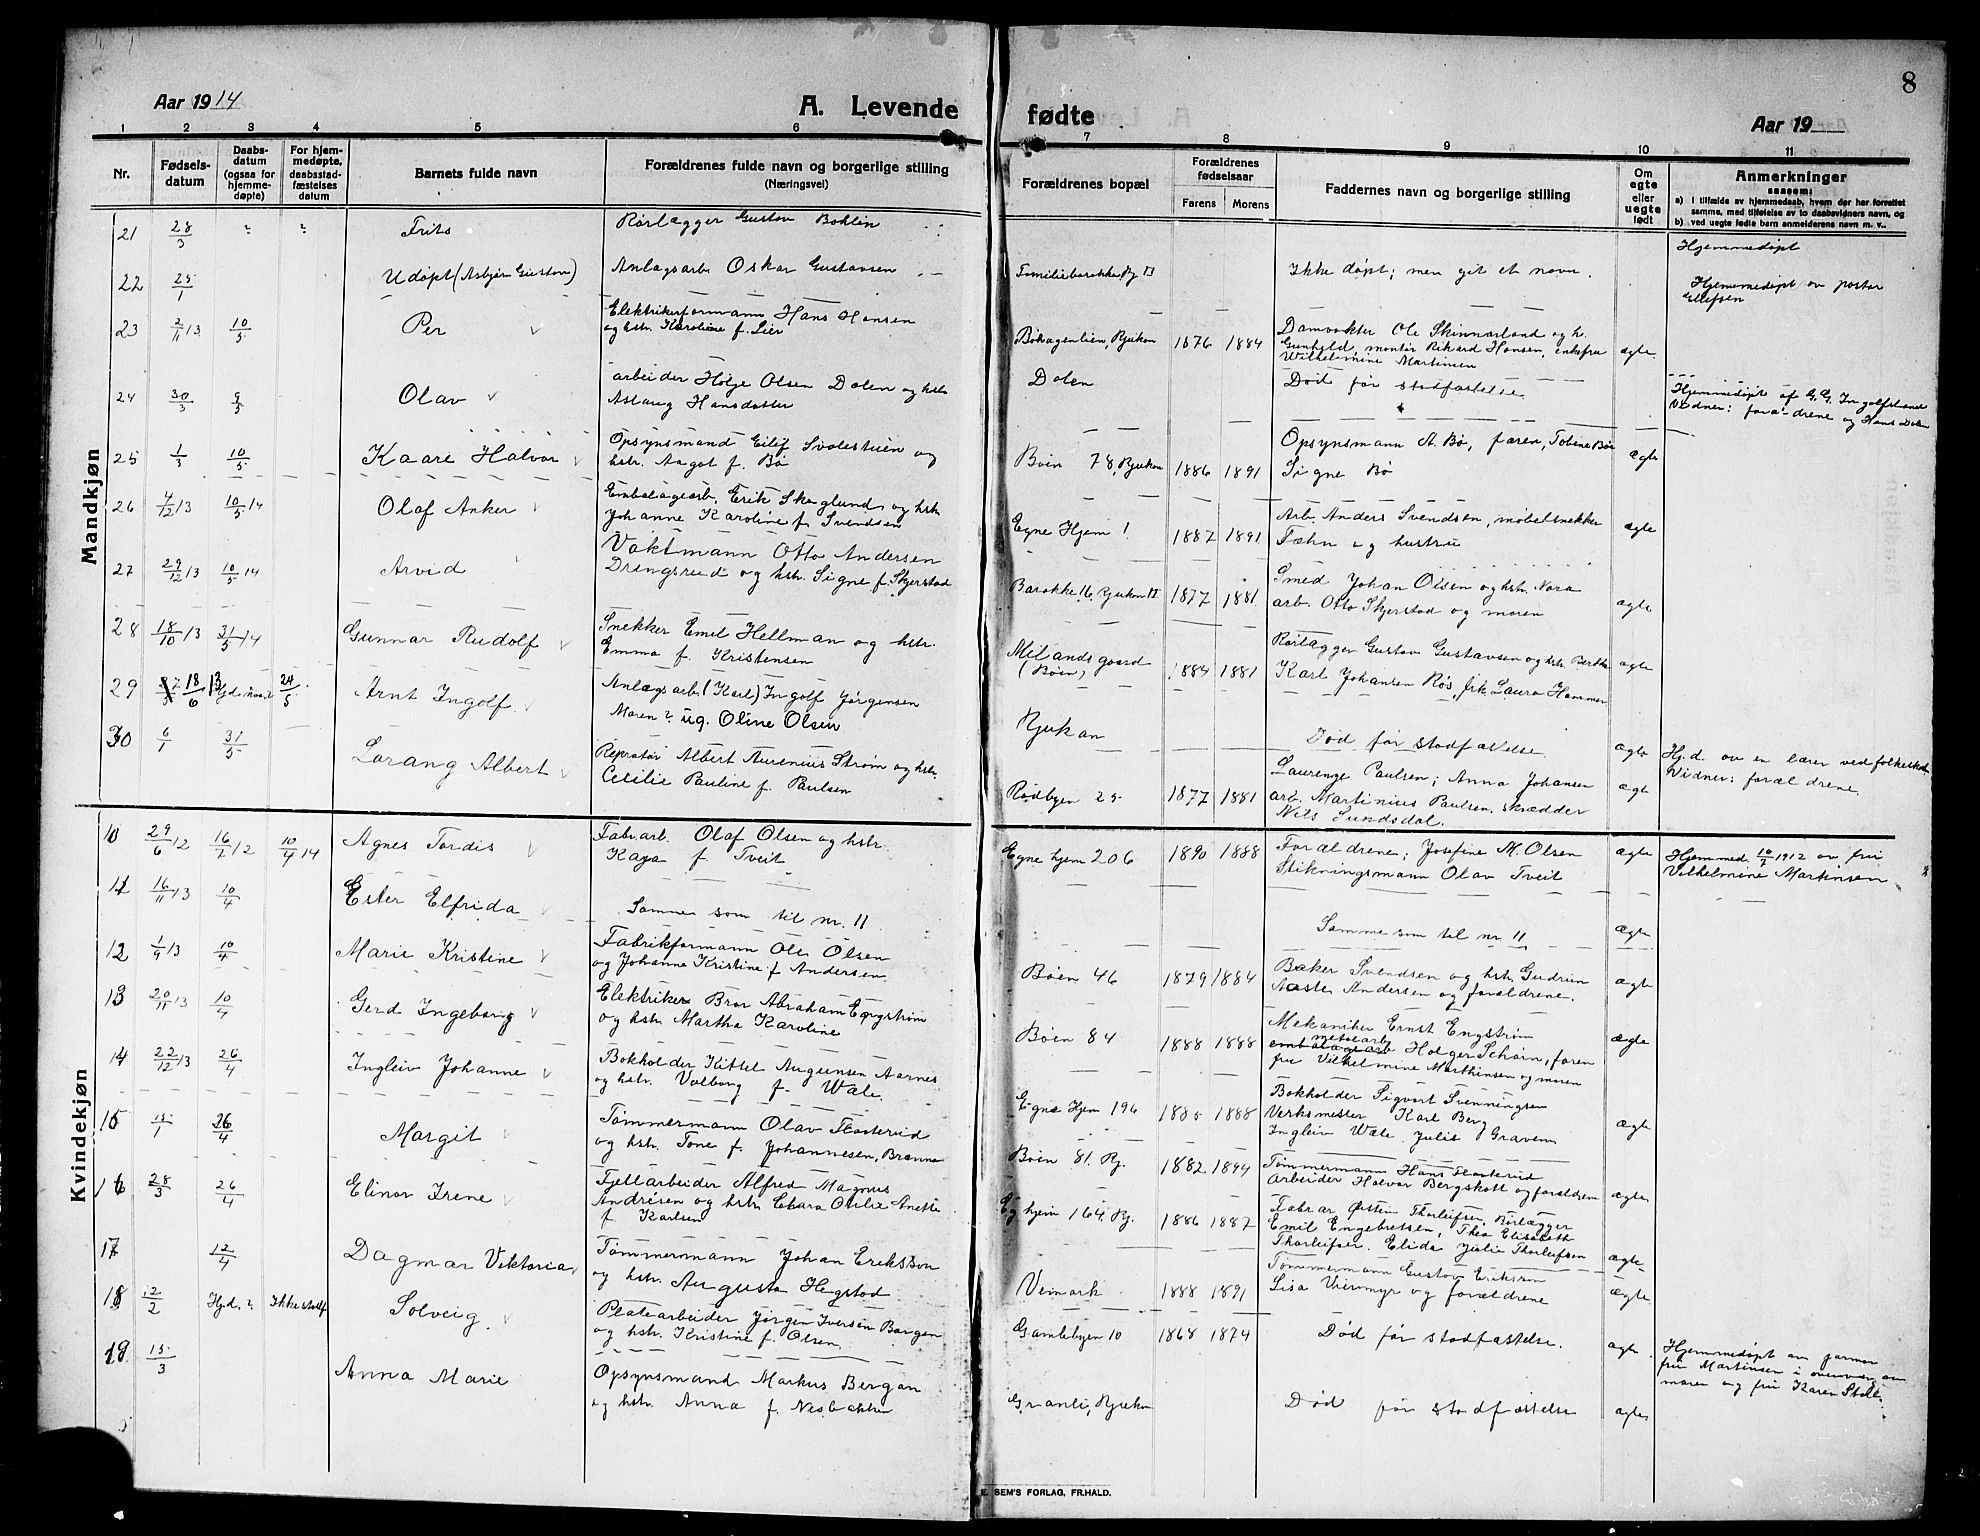 Aar 1914
A. Levende
fødte
Aar 19
8
1 2 3 4 5 6 7 8 9 10 11
Nr.
Fødsels-
datum
Daabs-
datum
(ogsaa for
hjemme-
døpte)
For hjem-
medøpte,
daabsstad-
fæstelses
datum
Barnets fulde navn
Forældrenes fulde navn og borgerlige stilling
(Næringsvei)
Forældrenes bopæl
Forældrenes
fødselsaar
Farens Morens
Faddernes navn og borgerlige stilling
Om
ægte
eller
uegte
født
Anmerkninger
saasom:
a) I tilfælde av hjemmedaab, hvem der har forrettet
samme, med tilføielse av to daabsvidners navn, og
b) ved uegte fødte barn anmelderens navn m. v..
Mandkjøn
21 28/3 ? ? Frits
Rørlægger Gustav Bohlin
Hjemmedøpt
22 25/1 Udøpt (Asbjørn Gustav)
Anlægsarb. Oskar Gustavsen
Familiebarakke, Rj. II
Ikke døpt; men git et navn.
Hjemmedøpt av pastor
Ellefsen
23 2/11 13 10/5 Per
Elektrikerformann Hans Hansen
og hstr. Karoline f. Lier
Bøhagenlien, Rjukan 1876 1884
Damvokter Ole Skinnarland og h.
Gunhild, montør Rikard Hansen, enkefru
Wilhelmine Martinsen
ægte
24 30/3 9/5 Olav
arbeider Hølje Olsen Dalen og hstr
Aslaug Hansdatter
Dalen
Død før stadfæstelse
Hjemmedøpt af G. G. Ingolfsland
Vidner: forældrene og Hans Dalen
25 1/3 10/5 Kaare Halvor
Opsynsmand Eilef Svalestuen og
hstr. Aagot f. Bø
Bøen 78, Rjukan 1886 1891
Opsynsmann A. Bø, faren, Tobine Bø
Signe Bø
ægte
26 4/12 13 10/5 14 Olaf Anker
Embalagearb. Erik Skoglund og hstr.
Johanne Karoline f. Svendsen
Egne Hjem 1 1887 1891
Arb. Anders Svendsen, møbelsnekker
Fæhn og hustru
ægte
27 29/12 13 10/5 14 Arvid
Vaktmann Otto Andersen
Drengsrud og hstr. Signe f. Skjerstad
Barakke 16. Rjukan II 1877 1881
Smed Johan Olsen og hstr. Nora
arb. Otto Skjerstad og moren
ægte
28 18/10 13 31/5 14 Gunnar Rudolf
Snekker Emil Hellman og hstr.
Emma f. Kristensen
Mælandsgaard
(Bøen) 1884 1881
Rørlægger Gustav Gustavsen og hstr. Bertha
Karl Johansen Røs, frk. Laura Hammer
ægte
29 18/6 13 24/5 Arnt Ingolf
Anlægsarb. (Karl) Ingolf Jørgensen
Moren ? ug. Oline Olsen
Rjukan
Død før stadfæstelse
ægte
Hj.d. av en lærer ved folkeskolen
Vidner: forældrene.
30 6/1 31/5 Lorang Albert
Repratør Albert Aurenius Strøm og hstr.
Cecilie Pauline f. Paulsen
Rødbyen 25 1877 1881
Laurense Paulsen; Anna Johansen
arb. Martinius Paulsen, skrædder
Nils Sundsdal.
ægt
Kvindekjøn
10 29/6 12 16/7 12 10/4 14 Agnes Tordis
Fabr.arb. Olaf Olsen og hstr.
Kaya f. Tveit
Egne hjem 206 1890 1888
Forældrene; Josefine M. Olsen
Stikningsmann Olav Tveit
ægte
Hjemmed. 10/7 1912 av fru
Vilhelmine Martinsen
11 16/11 13 10/4 Ester Elfrida
Samme som til nr. 11
Samme som til nr. 11
ægte
12 1/9 13 10/4 Marie Kristine
Fabrikformann Ole Olsen
og Johanne Kristine f. Andersen
Bøen 46 1879 1884
Baker Svendsen og hstr. Gudrun
Aaste Andersen og forældrene.
ægte
13 20/11 13 10/4 Gerd Ingeborg
Elektriker Bror Abraham Engstrøm
og hstr. Martha Karoline
Bøen 84 1888 1888
Mekaniker Ernst Engstrøm
Holger Schørn, faren
fru Vilhelmine Marthinsen og moren
ægte
14 22/12 13 26/4 Ingleiv Johanne
Bokholder Kittel Augunsen Aarnes
og hstr. Valborg f. Wale.
Egne Hjem 196 1885 1888
Bokholder Sigvart Svenningsen
Verksmester Karl Berg
Ingleiv Wale. Julie Gravem
ægte
15 15/1 26/4 Margit
Tømmermann Olav Flosterud
og hstr. Tone f. Johannesen, Brenna
Bøen 81. Rj. 1882 1894
Tømmermann Hans Flosterud
arbeider Halvor Bergskott og forældrene
ægte
16 28/3 26/4 Elinor Irene
Fjellarbeider Alfred Magnus
Andrésen og hstr. Clara Otilie Anette
f. Karlsen
Eg. hjem 164. Rj. 1886 1887
Fabr.ar Østein Thorleifsen, Rørlægger
Emil Engebretsen, Thea Elisabeth
Thorleifsen. Elida Julie Thorleifsen
ægte
17 12/4 Dagmar Viktoria
Tømmermann Johan Eriksson
og hstr. Augusta Hegstad
Vemark 1888 1891
Tømmermann Gustav Erikson
Lisa Viermyr og forældrene
ægte
18 12/2 Hj.d. ? Ikke stadf Solveig
Platearbeider Jørgen Iversen Bergen
og hstr. Kristine f. Olsen
Gamlebyen 10 1868 1874
Død før stadfæstelse.
ægte
Hjemmedøpt av jormor
fru Martinsen i overvær av
moren og fru Karen Stoll
19 15/3 Anna Marie
Opsynsmand Markus Bergan
og hstr. Anna f. Nesbakken
Granli, Rjukan
Død før stadfæstelse
ægte
E. SEM'S FORLAG, FR.HALD.